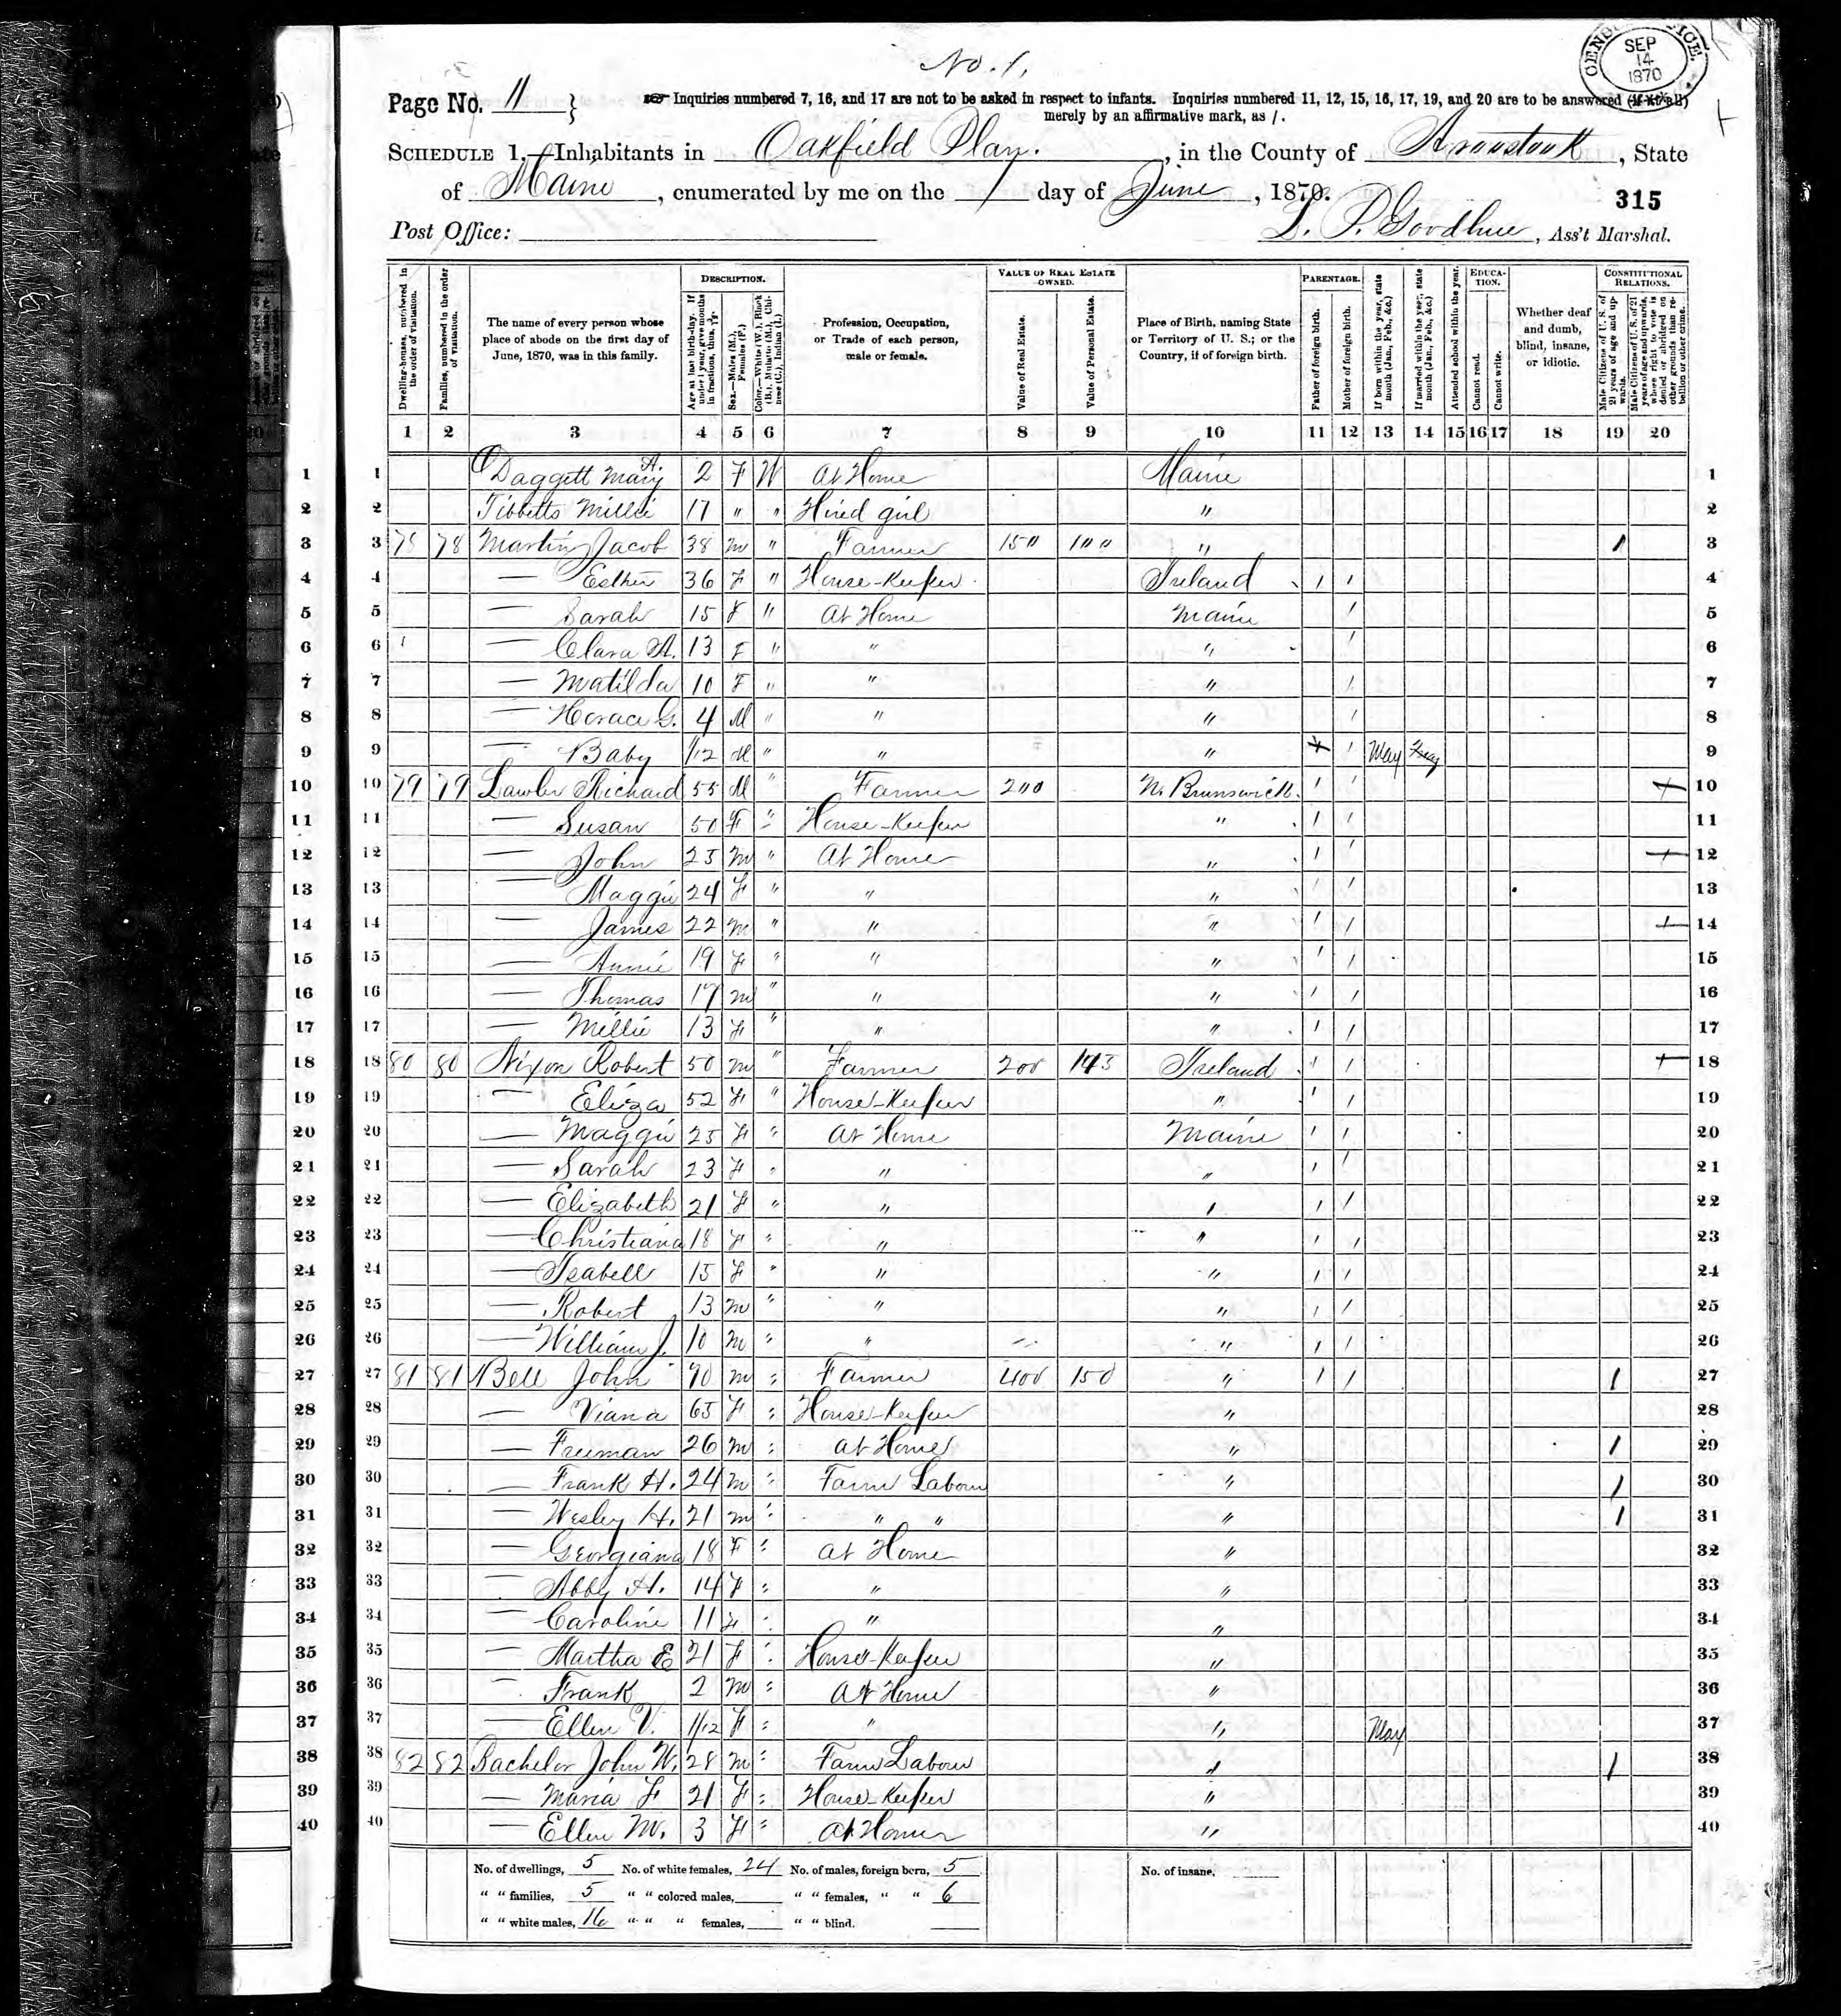 No. 1.
CENSUS OFFICE. SEP 14 1870
Page No. 11 } Inquiries numbered 7, 16, and 17 are not to be asked in respect to infants. Inquiries numbered 11, 12, 15, 16, 17, 19, and 20 are to be answered (if at all)
merely by an affirmative mark, as /.
SCHEDULE 1.—Inhabitants in Oakfield Plan. , in the County of Aroostook , State
of Maine , enumerated by me on the 1 day of June , 1870.
315
Post Office: L. P. Goodhue , Ass't Marshal.
Dwelling-houses, numbered in the order of visitation.
Families, numbered in the order of visitation.
The name of every person whose place of abode on the first day of June, 1870, was in this family.
DESCRIPTION.
Age at last birth-day. If under 1 year, give months in fractions, thus, 3/12.
Sex.—Males (M.), Females (F.)
Color.—White (W.), Black (B.), Mulatto (M.), Chinese (C.), Indian (I.)
Profession, Occupation, or Trade of each person, male or female.
VALUE OF REAL ESTATE OWNED.
Value of Real Estate.
Value of Personal Estate.
Place of Birth, naming State or Territory of U. S.; or the Country, if of foreign birth.
PARENTAGE.
Father of foreign birth.
Mother of foreign birth.
If born within the year, state month (Jan., Feb., &c.)
If married within the year, state month (Jan., Feb., &c.)
Attended school within the year.
EDUCATION.
Cannot read.
Cannot write.
Whether deaf and dumb, blind, insane, or idiotic.
CONSTITUTIONAL RELATIONS.
Male Citizens of U. S. of 21 years of age and upwards.
Male Citizens of U. S. of 21 years of age and upwards, where right to vote is denied or abridged on other grounds than rebellion or other crime.
1 2 3 4 5 6 7 8 9 10 11 12 13 14 15 16 17 18 19 20
1 1 Daggett Mary A. 2 F W At Home Maine 1
2 2 Tibbetts Millie 17 " " Hired girl " 2
3 3 78 78 Martin Jacob 38 m " Farmer 150 100 " / 3
4 4 — Esther 36 F " House-Keeper Ireland / / 4
5 5 — Sarah 15 F " At Home Maine / 5
6 6 — Clara A. 13 F " " " / 6
7 7 — Matilda 10 F " " " / 7
8 8 — Horace G. 4 M " " " / 8
9 9 — Baby 1/12 M " " " / May 9
10 10 79 79 Lawler Richard 55 M " Farmer 200 N. Brunswick / / + 10
11 11 — Susan 50 F " House-Keeper " / / 11
12 12 — John 25 m " At Home " / / + 12
13 13 — Maggie 24 F " " " / / 13
14 14 — James 22 m " " " / / + 14
15 15 — Annie 19 F " " " / / 15
16 16 — Thomas 17 m " " " / / 16
17 17 — Millie 13 F " " " / / 17
18 18 80 80 Nixon Robert 50 m " Farmer 200 143 Ireland / / + 18
19 19 — Eliza 52 F " House-Keeper " / / 19
20 20 — Maggie 25 F " At Home Maine / / 20
21 21 — Sarah 23 F " " " / / 21
22 22 — Elizabeth 21 F " " " / / 22
23 23 — Christiana 18 F " " " / / 23
24 24 — Isabell 15 F " " " / / 24
25 25 — Robert 13 m " " " / / 25
26 26 — William J. 10 m " " " / / 26
27 27 81 81 Bell John 70 m " Farmer 400 150 " / / / 27
28 28 — Viana 65 F " House-Keeper " 28
29 29 — Freeman 26 m " at Home " / 29
30 30 — Frank H. 24 m " Farm Labour " / 30
31 31 — Wesley H. 21 m " " " " / 31
32 32 — Georgiana 18 F " at Home " 32
33 33 — Abby H. 14 F " " " 33
34 34 — Caroline 11 F " " " 34
35 35 — Martha E 21 F " House-Keeper " 35
36 36 — Frank 2 m " At Home " 36
37 37 — Ellen V. 1/12 F " " " May 37
38 38 82 82 Bachelor John W. 28 m " Farm Labour " / 38
39 39 — Maria F 21 F " House-Keeper " 39
40 40 — Ellen M. 3 F " At Home " 40
No. of dwellings, 5 No. of white females, 24 No. of males, foreign born, 5 No. of insane,
" " families, 5 " " colored males, " " females, " " 6
" " white males, 16 " " " females, " " blind.